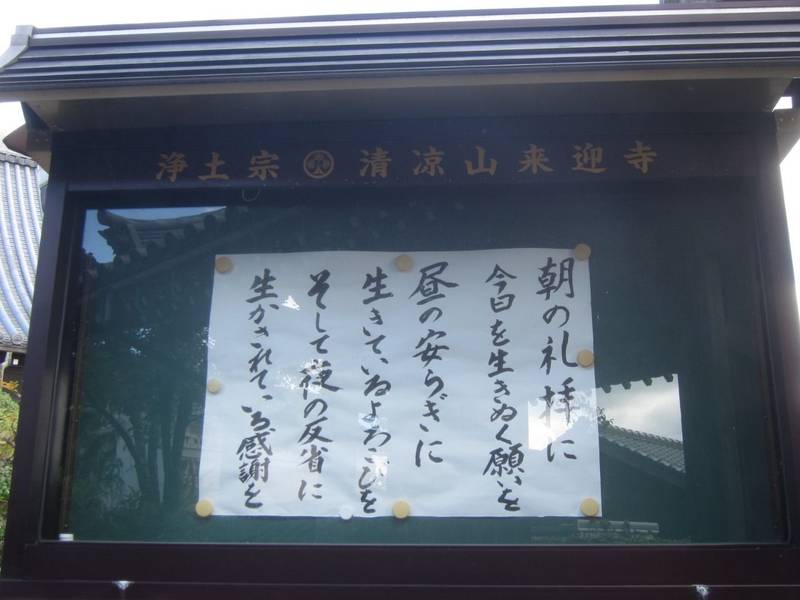 浄土宗 清凉山来迎寺
朝の礼拝に
今日を生きぬく願いを
昼の安らぎに
生きているよろこびを
そして夜の反省に
生かされている感謝を